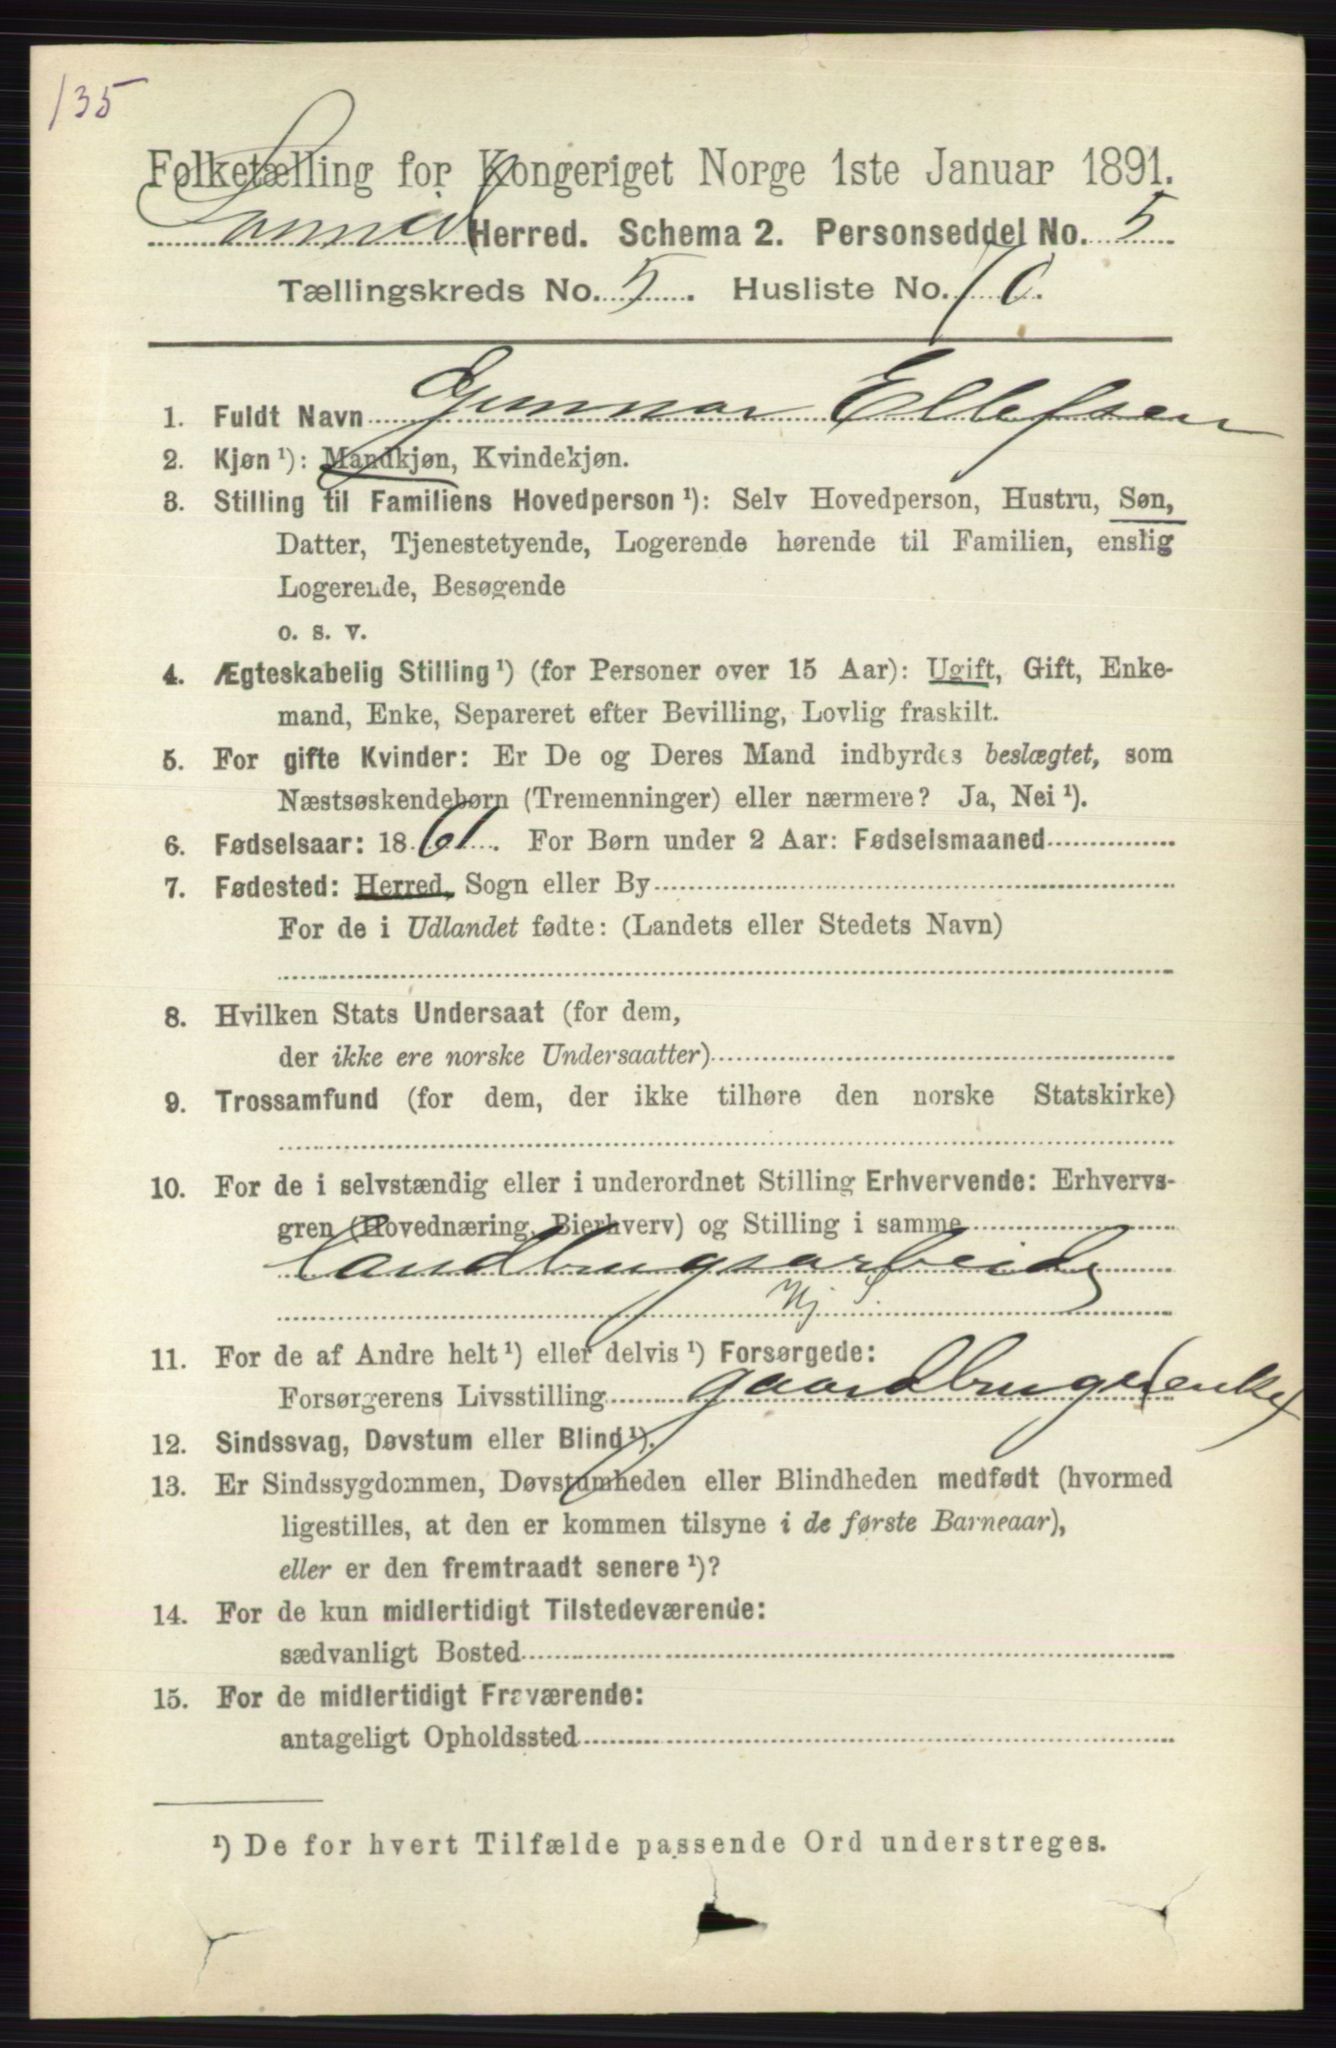 135
Folketælling for Kongeriget Norge 1ste Januar 1891.
Herred. Schema 2. Personseddel No. 5
Tællingskreds No. 5. Husliste No. 10.
1. Fuldt Navn Gunnar Ellefsen
2. Kjøn ¹): Mandkjøn, Kvindekjøn.
3. Stilling til Familiens Hovedperson ¹): Selv Hovedperson, Hustru, Søn,
Datter, Tjenestetyende, Logerende hørende til Familien, enslig
Logerende, Besøgende
o. s. v.
4. Ægteskabelig Stilling ¹) (for Personer over 15 Aar): Ugift, Gift, Enke-
mand, Enke, Separeret efter Bevilling, Lovlig fraskilt.
5. For gifte Kvinder: Er De og Deres Mand indbyrdes beslægtet, som
Næstsøskendebørn (Tremenninger) eller nærmere? Ja, Nei ¹).
6. Fødselsaar: 1861. For Børn under 2 Aar: Fødselsmaaned
7. Fødested: Herred, Sogn eller By
For de i Udlandet fødte: (Landets eller Stedets Navn)
8. Hvilken Stats Undersaat (for dem,
der ikke ere norske Undersaatter)
9. Trossamfund (for dem, der ikke tilhøre den norske Statskirke)
10. For de i selvstændig eller i underordnet Stilling Erhvervende: Erhvervs-
gren (Hovednæring, Bierhverv) og Stilling i samme
Landbrugsarbeide
Hj S.
11. For de af Andre helt ¹) eller delvis ¹) Forsørgede:
Forsørgerens Livsstilling gaardbruger(enke)
12. Sindssvag, Døvstum eller Blind ¹).
13. Er Sindssygdommen, Døvstumheden eller Blindheden medfødt (hvormed
ligestilles, at den er kommen tilsyne i de første Barneaar),
eller er den fremtraadt senere ¹)?
14. For de kun midlertidigt Tilstedeværende:
sædvanligt Bosted
15. For de midlertidigt Fraværende:
antageligt Opholdssted
¹) De for hvert Tilfælde passende Ord understreges.